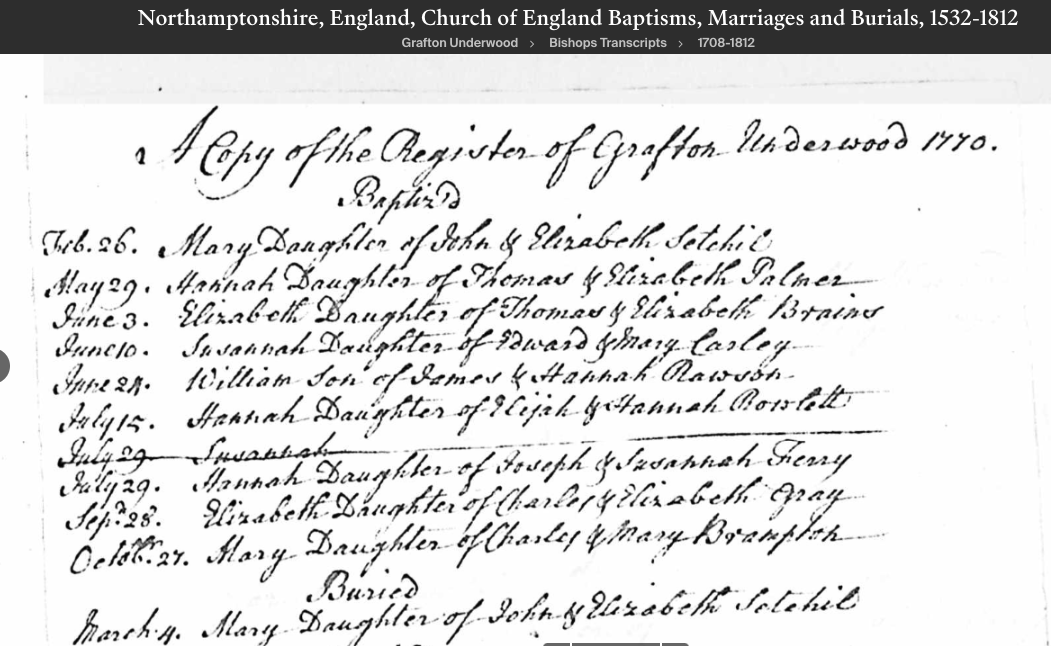 Northamptonshire, England, Church of England Baptisms, Marriages and Burials, 1532-1812
Grafton Underwood > Bishops Transcripts > 1708-1812
A Copy of the Register of Grafton Underwood 1770.
Baptiz'd
Feb. 26. Mary Daughter of John & Elizabeth Setchil
May 29. Hannah Daughter of Thomas & Elizabeth Palmer
June 3. Elizabeth Daughter of Thomas & Elizabeth Brains
June 10. Susannah Daughter of Edward & Mary Carley
June 24. William Son of James & Hannah Rawson
July 15. Hannah Daughter of Elijah & Hannah Rowlett
July 29 Susannah
July 29. Hannah Daughter of Joseph & Susannah Ferry
Sepr. 28. Elizabeth Daughter of Charles & Elizabeth Gray
Octobr. 27. Mary Daughter of Charles & Mary Brampton
Buried
March 4. Mary Daughter of John & Elizabeth Setchil